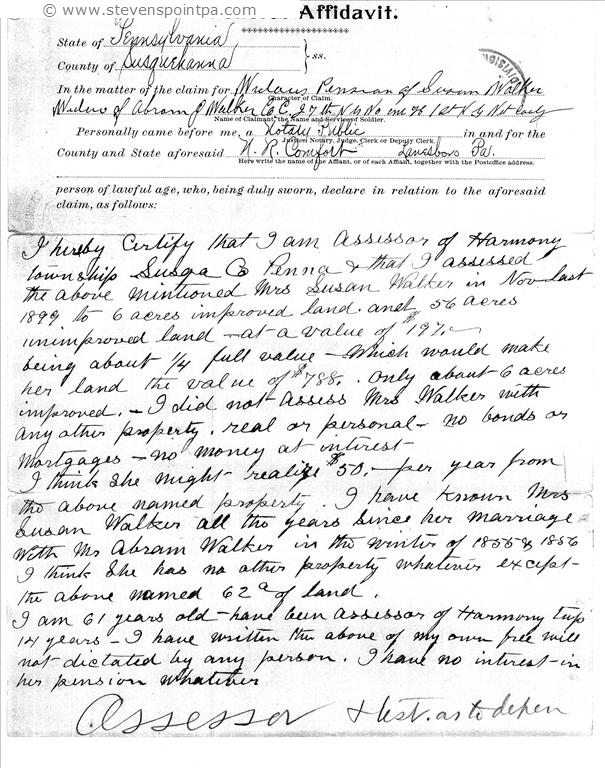 © www.stevenspointpa.com
Affidavit.
State of Pennsylvania
County of Susquehanna } ss.
In the matter of the claim for Widows Pension of Susan Walker
Character of Claim.
Widow of Abram J Walker Co C, 27th N.Y.
Name of Claimant, the Name and Service of Soldier.
Personally came before me, a Notary Public in and for the
Justice, Notary, Judge, Clerk or Deputy Clerk.
County and State aforesaid N. R. Comfort Lanesboro Pa.
Here write the name of the Affiant, or of each Affiant, together with the Postoffice address.
person of lawful age, who, being duly sworn, declare in relation to the aforesaid
claim, as follows:
I hereby Certify that I am Assessor of Harmony
township Susqa Co Penna & that I assessed
the above mintioned Mrs Susan Walker in Nov last
1899 to 6 acres improved land. and 56 acres
unimproved land - at a value of $197.
being about 1/4 full value - which would make
her land the value of $788. only about 6 acres
improved. - I did not Assess Mrs Walker with
any other property. real or personal - no bonds or
mortgages - no money at interest
I think she might realize $50. - per year from
the above named property. I have known Mrs
Susan Walker all the years since her marriage
with Mr Abram Walker in the winter of 1855 & 1856
I think she has no other property whatever except -
the above named 62 a of land.
I am 61 years old - have been assessor of Harmony twp
14 years - I have written the above of my own free will
not dictated by any person. I have no interest - in
her pension whatever
Assessor & test. as to depen